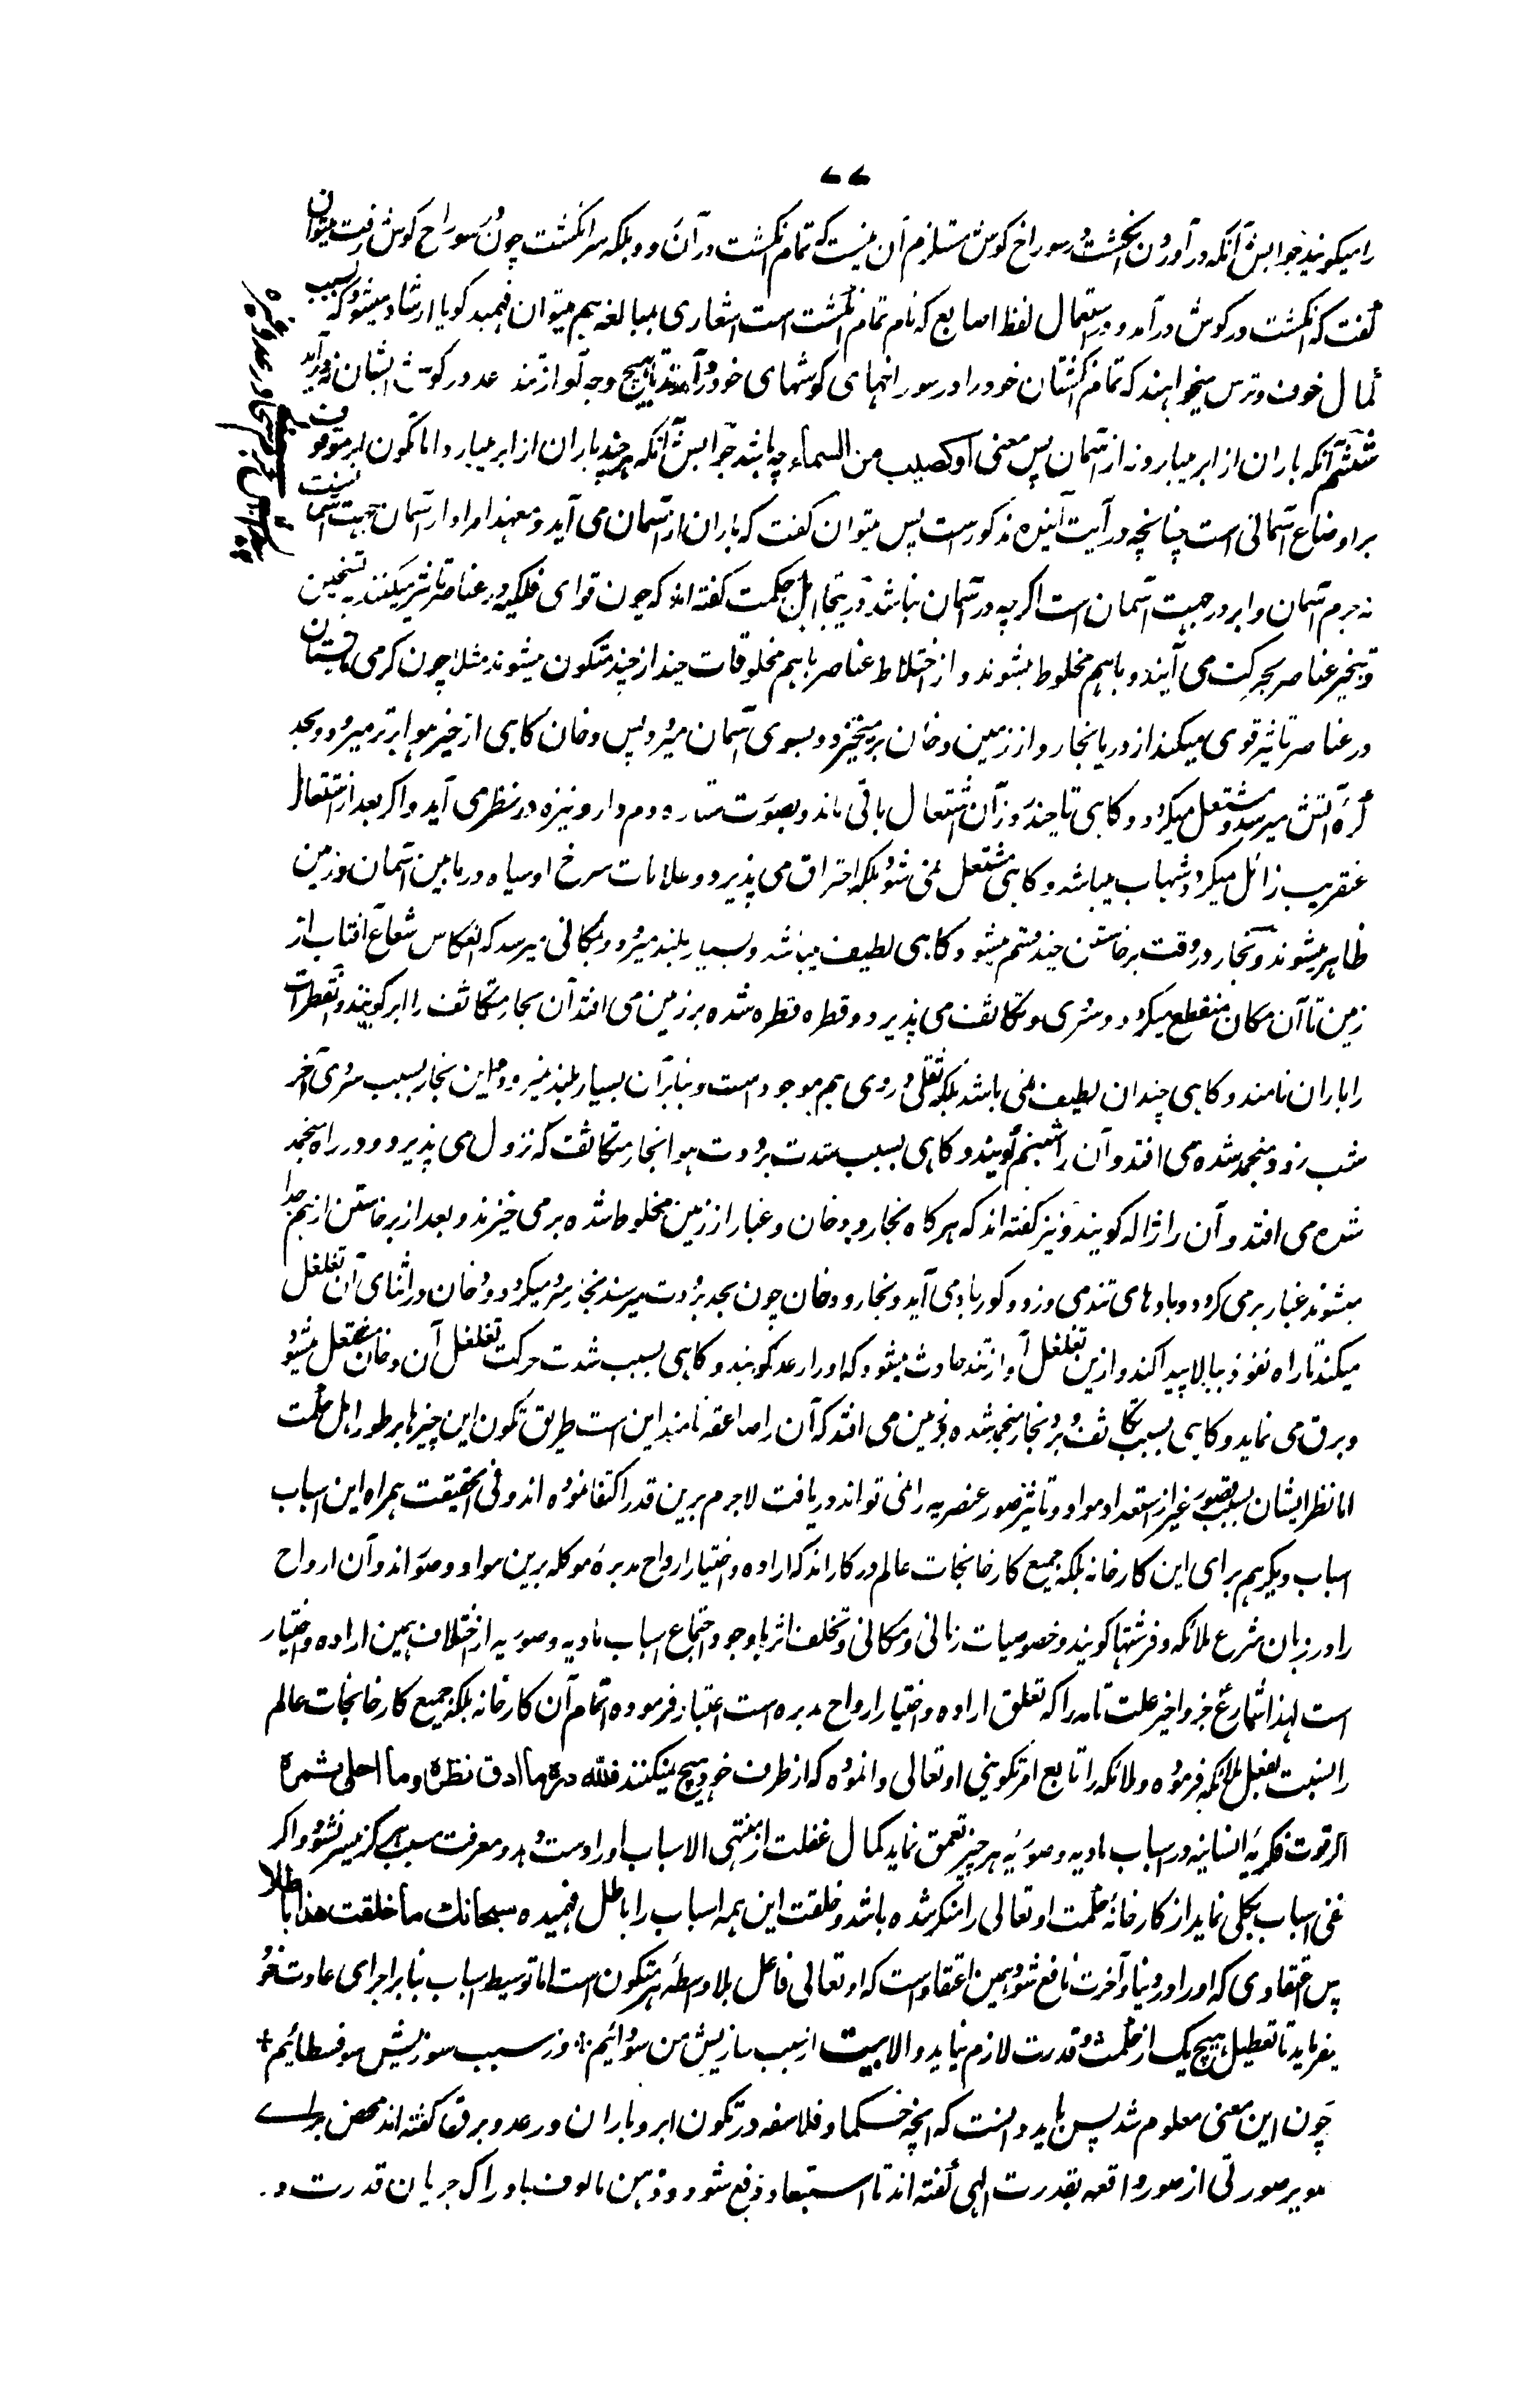 ۷۷
را میگویند جوابش آنکه در آوردن انگشت در سوراخ گوش مستلزم آن نیست که تمام انگشت در آن رود بلکه سر انگشت چون سوراخ گوش رفت میتوان
گفت که انگشت در گوش درآمد و در استعمال لفظ اصابع که نام تمام انگشت است اشعاری بمبالغه هم میتوان فهمید گویا ارشاد میشود که بسبب
کمال خوف و ترس میخواهند که تمام انگشتان خود را در سوراخهای گوشهای خود درآرند تا بهیچ وجه آواز تند رعد در گوش ایشان نه درآید
ششم آنکه باران از ابر میبارد نه از آسمان پس معنی اوکصیب من السماء چه باشد جوابش آنکه هر چند باران از ابر میبارد اما تکون ابر موقوف
بر اوضاع آسمانی است چنانچه در آیت آینده مذکور است پس میتوان گفت که باران از آسمان می آید و معهذا مراد از آسمان جهت آسمانست
نه جرم آسمان و ابر در جهت آسمان است اگرچه در آسمان نباشد در ینجا اهل حکمت گفته اند که چون قوای فلکیه در عناصر تاثیر میکنند به تسخین
و تبخیر عناصر بحرکت می آیند و باهم مخلوط میشوند و از اختلاط عناصر باهم مخلوقات چند از چند متکون میشوند مثلا چون گرمی تابستان
در عناصر تاثیر قوی میکند از دریا بخار و از زمین دخان برمیخیزد و بسوی آسمان میرود پس دخان گاهی از حیز هوا برتر میرود و بحد
کرهٔ آتش میرسد و مشتعل میگردد و گاهی تا چند روز آن اشتعال باقی ماند و بصورت ستاره دم دار و نیزه در نظر می آید و اگر بعد از اشتعال
عنقریب زائل میگردد شهاب میباشد و گاهی مشتعل نمی شود بلکه احتراق می پذیرد و علامات سرخ او سیاه در مابین آسمان و زمین
ظاهر میشوند و بخار در وقت برخاستن چند قسم میشود گاهی لطیف میباشد و بسیار بلند میرود و بمکانی میرسد که انعکاس شعاع آفتاب از
زمین تا آن مکان منقطع میگردد و سردی و تکاثف می پذیرد و قطره قطره شده بر زمین می افتد آن بخار متکاثف را ابر گویند و آن قطرات
را باران نامند و گاهی چندان لطیف نمی باشد بلکه ثقلی و روی هم موجود است و بنابر آن بسیار بلند نمیرود و این بخار بسبب سردی آخر
شب زود منجمد شده می افتد و آن را شبنم گویند و گاهی بسبب شدت برودت هوا بخار متکاثف که نزول می پذیرد و در راه منجمد
شده می افتد و آن را ژاله گویند و نیز گفته اند که هر گاه بخار و دخان و غبار از زمین مخلوط شده بر می خیزند و بعد از برخاستن از هم جدا
میشوند غبار بر می گردد و بادهای تند می وزد و گورباد می آید و بخار و دخان چون بحد برودت میرسند بخار سرد میگردد و دخان در اثنای آن تغلغل
میکند تا راه نفوذ ببالا پیدا کند و ازین تغلغل آواز تند حادث میشود که او را رعد گویند و گاهی بسبب شدت حرکت تغلغل آن دخان مشتعل میشود
و برق می نماید و گاهی بسبب تکاثف و برد بخار منجمد شده بر زمین می افتد که آن را صاعقه نامند این است طریق تکون این چیزها بر طور اهل حکمت
اما نظر ایشان بسبب قصور غیر از استعداد مواد و تاثیر صور عنصریه را نمی تواند دریافت لاجرم برین قدر اکتفا نموده اند و فی الحقیقت همراه این اسباب
اسباب دیگر هم برای این کارخانه بلکه جمیع کارخانجات عالم در کار اند که اراده و اختیار ارواح مدبرهٔ موکله برین مواد و صور اند و آن ارواح
را در زبان شرع ملائکه و فرشتها گویند و خصوصیات زمانی و مکانی و تخلف اثر با وجود اجتماع اسباب مادیه و صوریه از اختلاف همین اراده و اختیار
است لهذا شارع جزو اخیر علت تامه را که تعلق اراده و اختیار ارواح مدبره است اعتبار فرموده تمام آن کارخانه بلکه جمیع کارخانجات عالم
را نسبت بفعل ملائکه فرموده و ملائکه را تابع امر تکوینی او تعالی وانموده که از طرف خود هیچ نمیکنند فلله درهٔ ما ادق نظره و ما احلی ثمره
اگر قوت فکریهٔ انسانیه در اسباب مادیه و صوریهٔ هر چیز تعمق نماید کمال غفلت از منتهی الاسباب او را دست دهد و معرفت مسبب هرگز میسر نشود و اگر
نفی اسباب بکلی نماید از کارخانهٔ حکمت او تعالی را منکر شده باشد و خلقت این همه اسباب را باطل فهمیده سبحانک ما خلقت هذا باطلا
پس اعتقادی که او را در دنیا و آخرت نافع شود همین اعتقاد است که او تعالی فاعل بلا واسطهٔ هر متکون است اما توسیط اسباب بنابر اجرای عادت خود
میفرماید تا تعطیل هیچ یک از حکمت و قدرت لازم نیاید و الا بیت از سبب سازیش من سودائیم * وز سبب سوزیش سوفسطائیم *
چون این معنی معلوم شد پس باید دانست که آنچه حکما و فلاسفه در تکون ابر و باران و رعد و برق گفته اند محض برای
تصویر صورتی از صور واقعه بقدرت الهی گفته اند تا استبعاد دفع شود و ذهن مالوف با دراک جریان قدرت و